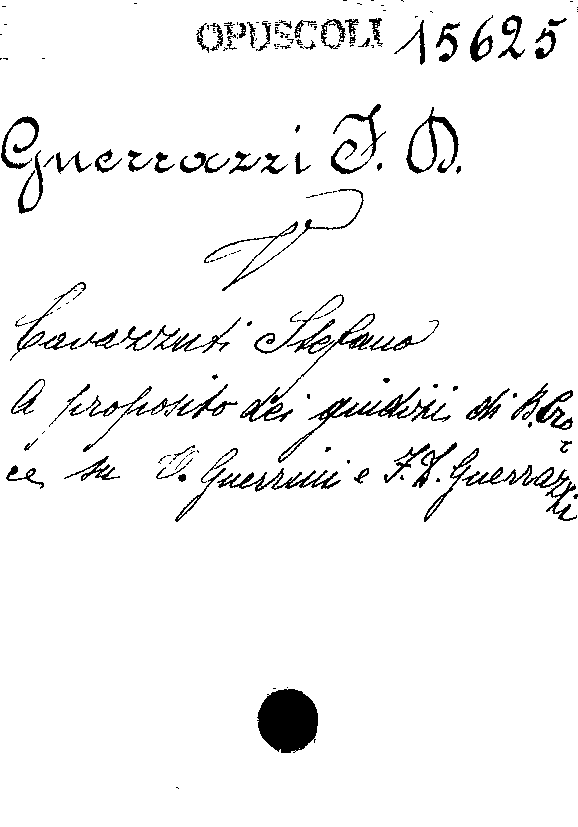 OPUSCOLI 15625
Guerrazzi F. D.
V
Cavazzuti Stefano
A proposito dei giudizi di B. Cro-
ce su O. Guerrini e F. D. Guerrazzi